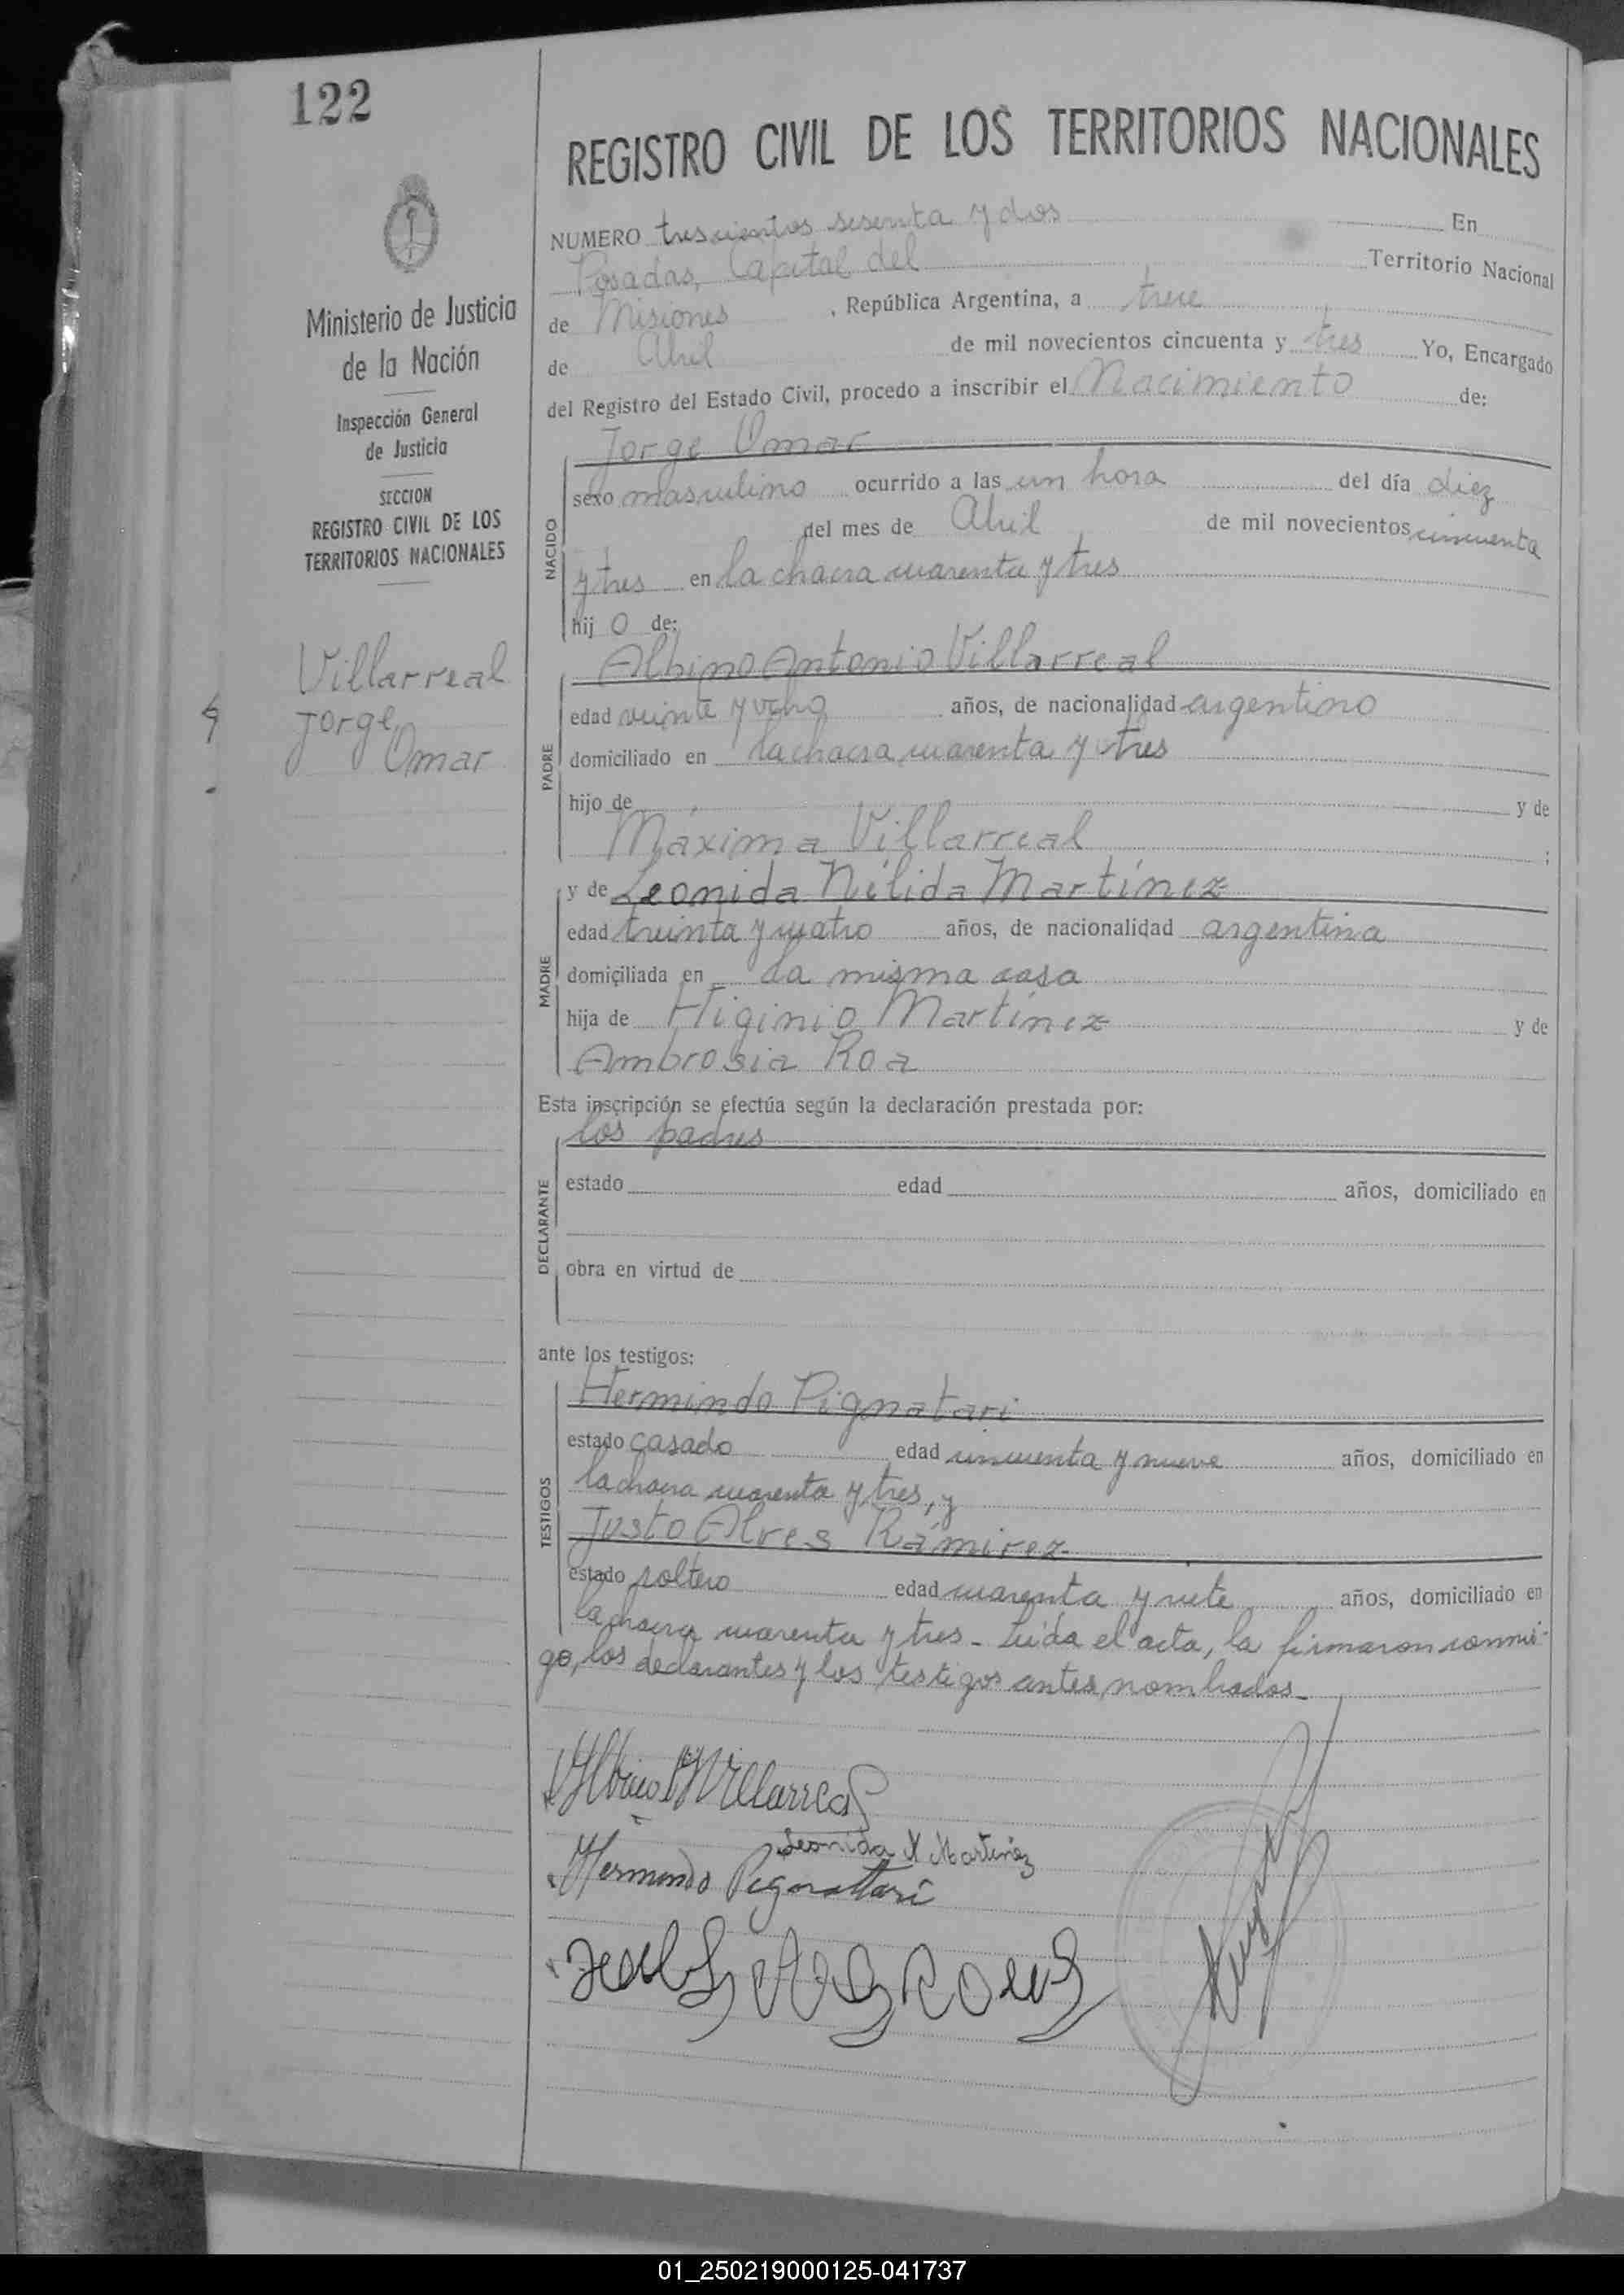 122
Ministerio de Justicia
de la Nación
Inspección General
de Justicia
SECCION
REGISTRO CIVIL DE LOS
TERRITORIOS NACIONALES
Villarreal
Jorge
Omar
REGISTRO CIVIL DE LOS TERRITORIOS NACIONALES
NUMERO trescientos sesenta y dos En
Posadas, Capital del Territorio Nacional
de Misiones, República Argentina, a trece
de Abril de mil novecientos cincuenta y tres Yo, Encargado
del Registro del Estado Civil, procedo a inscribir el Nacimiento de:
Jorge Omar
NACIDO
sexo masculino ocurrido a las un hora del día diez
del mes de Abril de mil novecientos cincuenta
y tres en la chacra cuarenta y tres
hij o de:
Albino Antonio Villarreal
PADRE
edad veinte y ocho años, de nacionalidad argentino
domiciliado en la chacra cuarenta y tres
hijo de y de
Máxima Villarreal ;
y de Leonida Nélida Martínez
MADRE
edad treinta y cuatro años, de nacionalidad argentina
domiciliada en la misma casa
hija de Higinio Martínez y de
Ambrosia Roa
Esta inscripción se efectúa según la declaración prestada por:
los padres
DECLARANTE
estado edad años, domiciliado en
obra en virtud de
ante los testigos:
Hermindo Pignatari
TESTIGOS
estado casado edad cincuenta y nueve años, domiciliado en
la chacra cuarenta y tres, y
Justo Alves Rámirez
estado soltero edad cuarenta y siete años, domiciliado en
la chacra cuarenta y tres - Leída el acta, la firmaron conmi-
go, los declarantes y los testigos antes nombrados -
Albino A Villarreal
Leonida N Martinez
Hermindo Pignattari
01_250219000125-041737